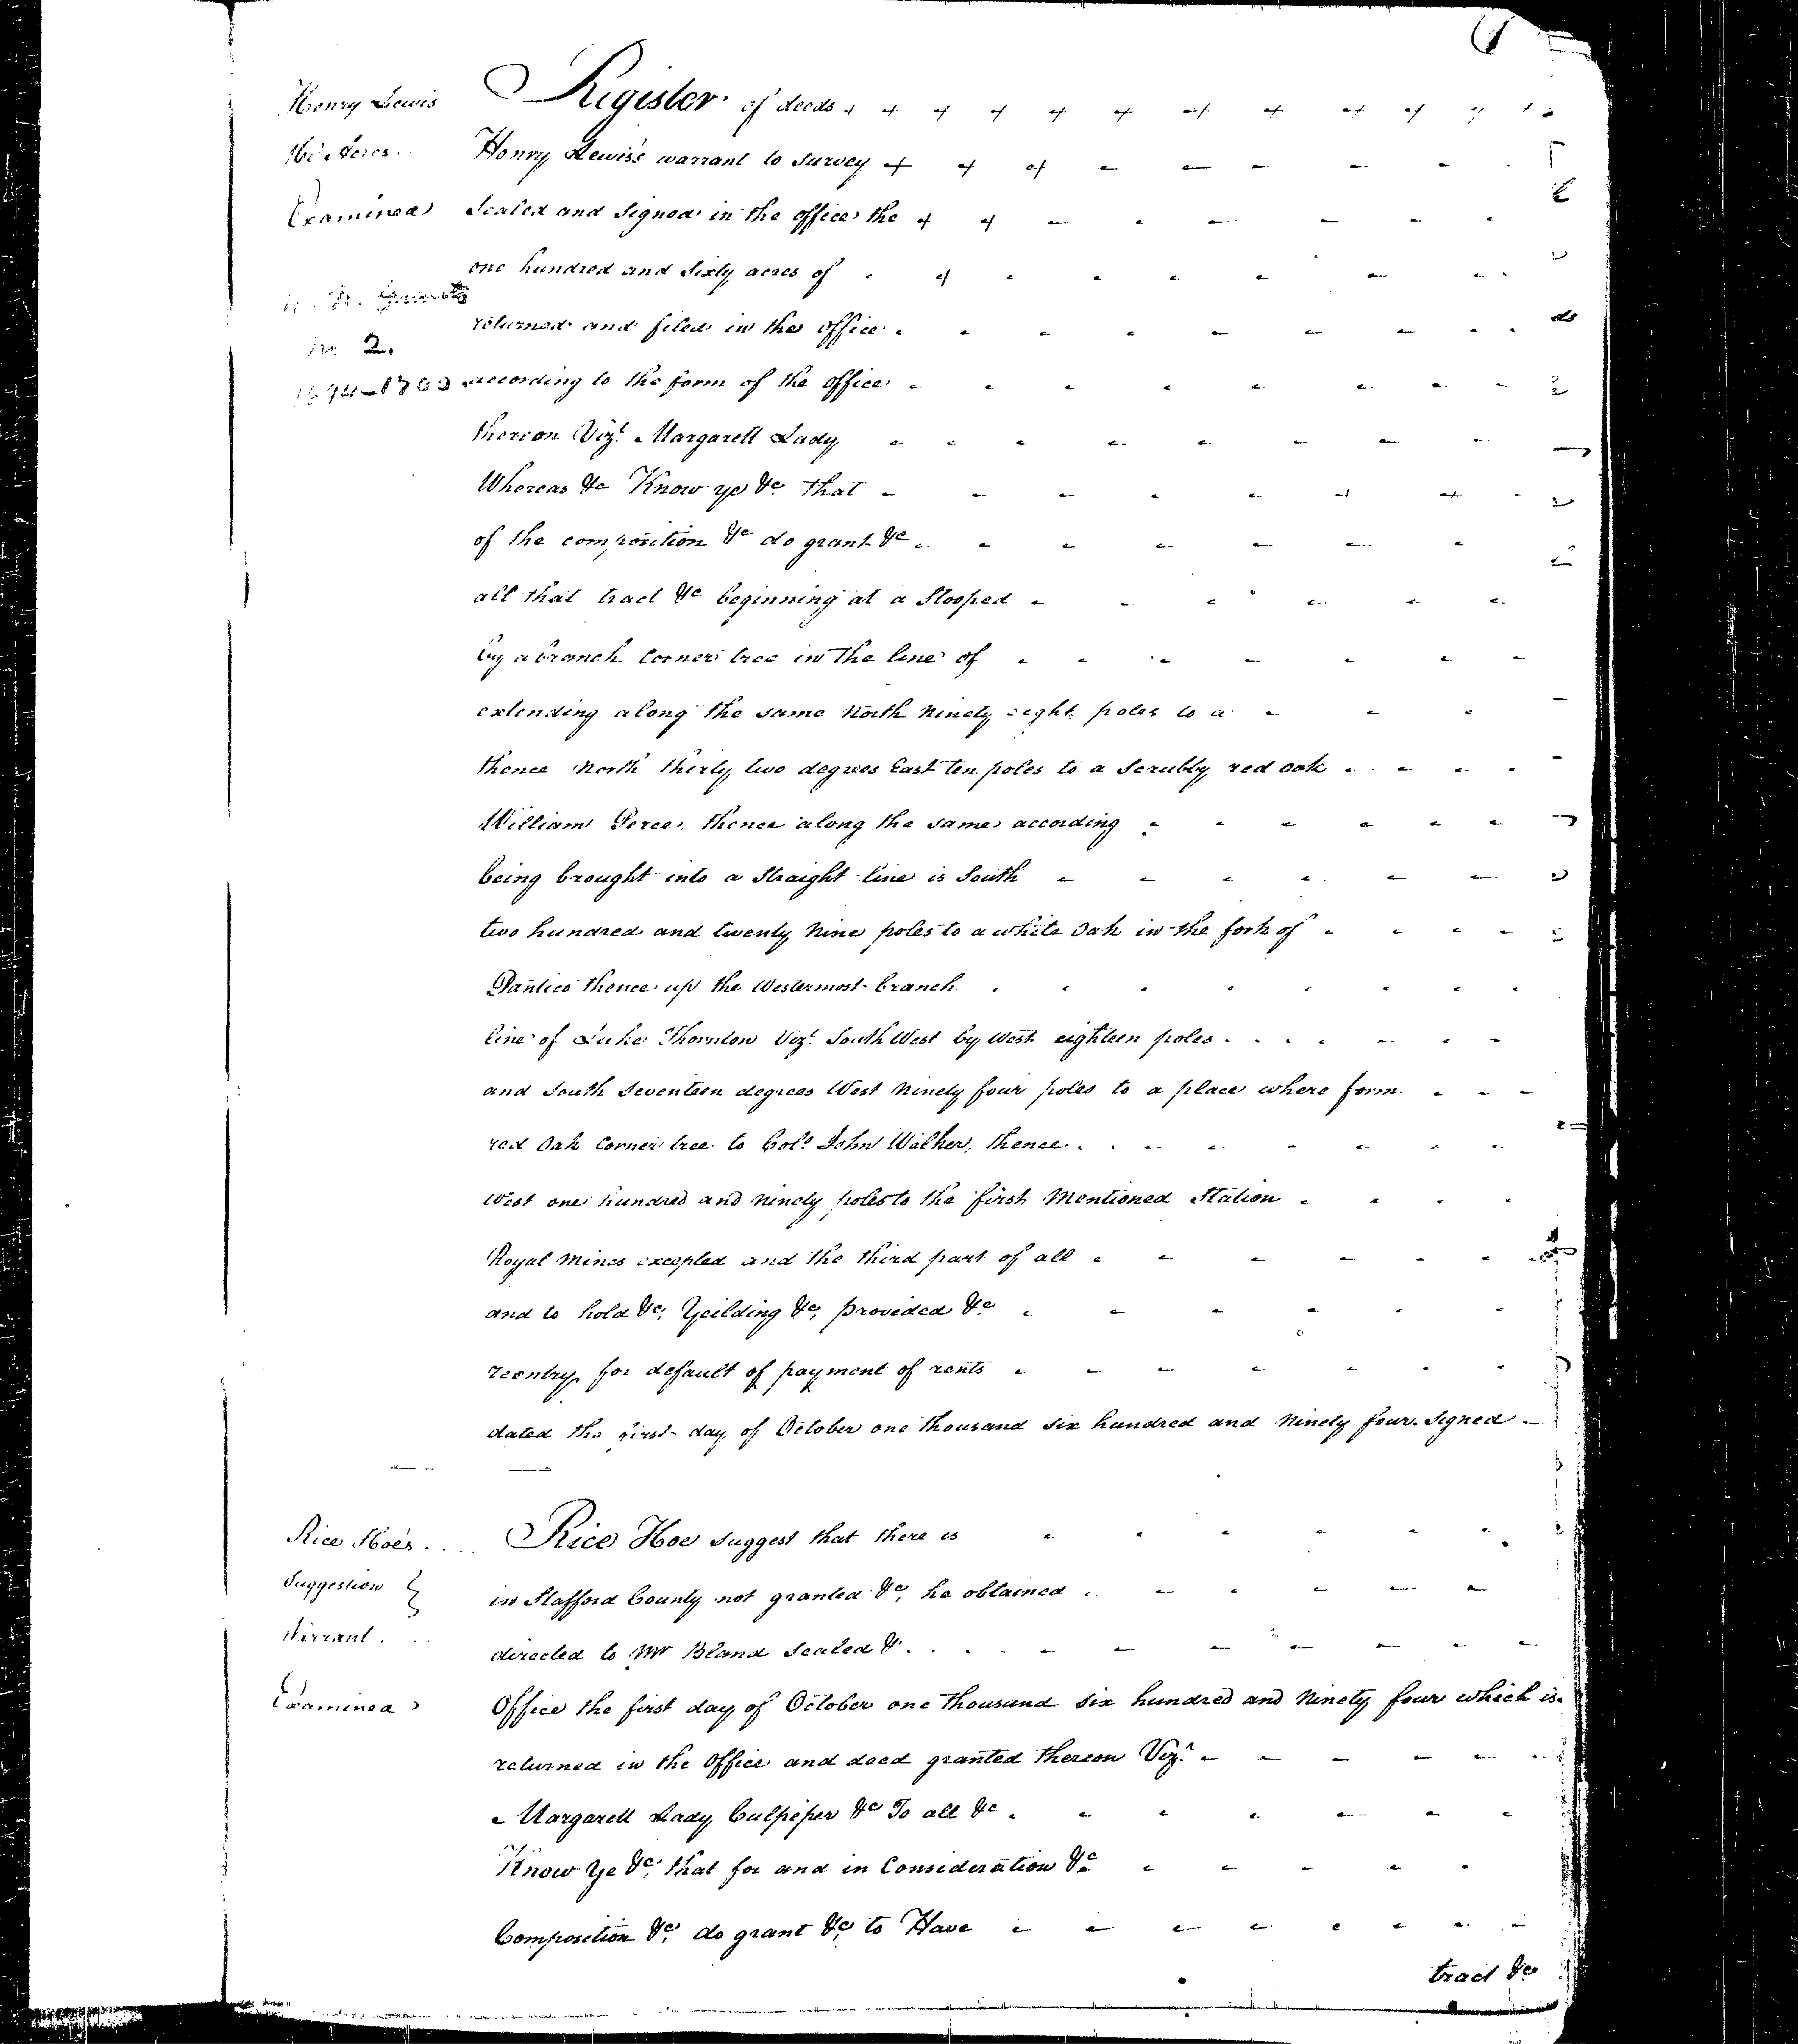 Henry Lewis
160 Acres
Examined
No 2.
1694-1700
Register of deeds
Henry Lewis's warrant to survey
Sealed and Signed in the office the
one hundred and Sixty acres of
returned and filed in the office
according to the form of the office
thereon Vizt. Margarett Lady
Whereas &c Know ye &c that
of the composition &c do grant &c
all that tract &c beginning at a Stooped
by a branch Corner tree in the line of
extending along the same North Ninety eight poles to a
thence North thirty two degrees East ten poles to a Scrubby red Oak
William Perce, thence along the same according
being brought into a Straight line is South
two hundred and twenty Nine poles to a white Oak in the fork of
thence up the Westermost branch
line of Luke Thornton Vizt. South West by West eighteen poles
and South Seventeen degrees West Ninety four poles to a place where form
red Oak Corner tree to Colo. John Walker, thence
West one hundred and Ninety poles to the first Mentioned Station
Royal Mines excepted and the third part of all
and to hold &c, Yeilding &c, provided &c
reentry for default of payment of rents
dated the first day of October one thousand Six hundred and Ninety four Signed
Rice Hoe's
Suggestion }
Warrant
Examined
Rice Hoe Suggest that there is
in Stafford County not granted &c, he obtained
directed to Mr Bland Sealed &
Office the first day of October one thousand Six hundred and Ninety four which is
returned in the Office and deed granted thereon Vizt.
Margarett Lady Culpeper &c To all &c
Know Ye &c, that for and in Consideration &c
Composition &c, do grant &c, to Have
tract &c